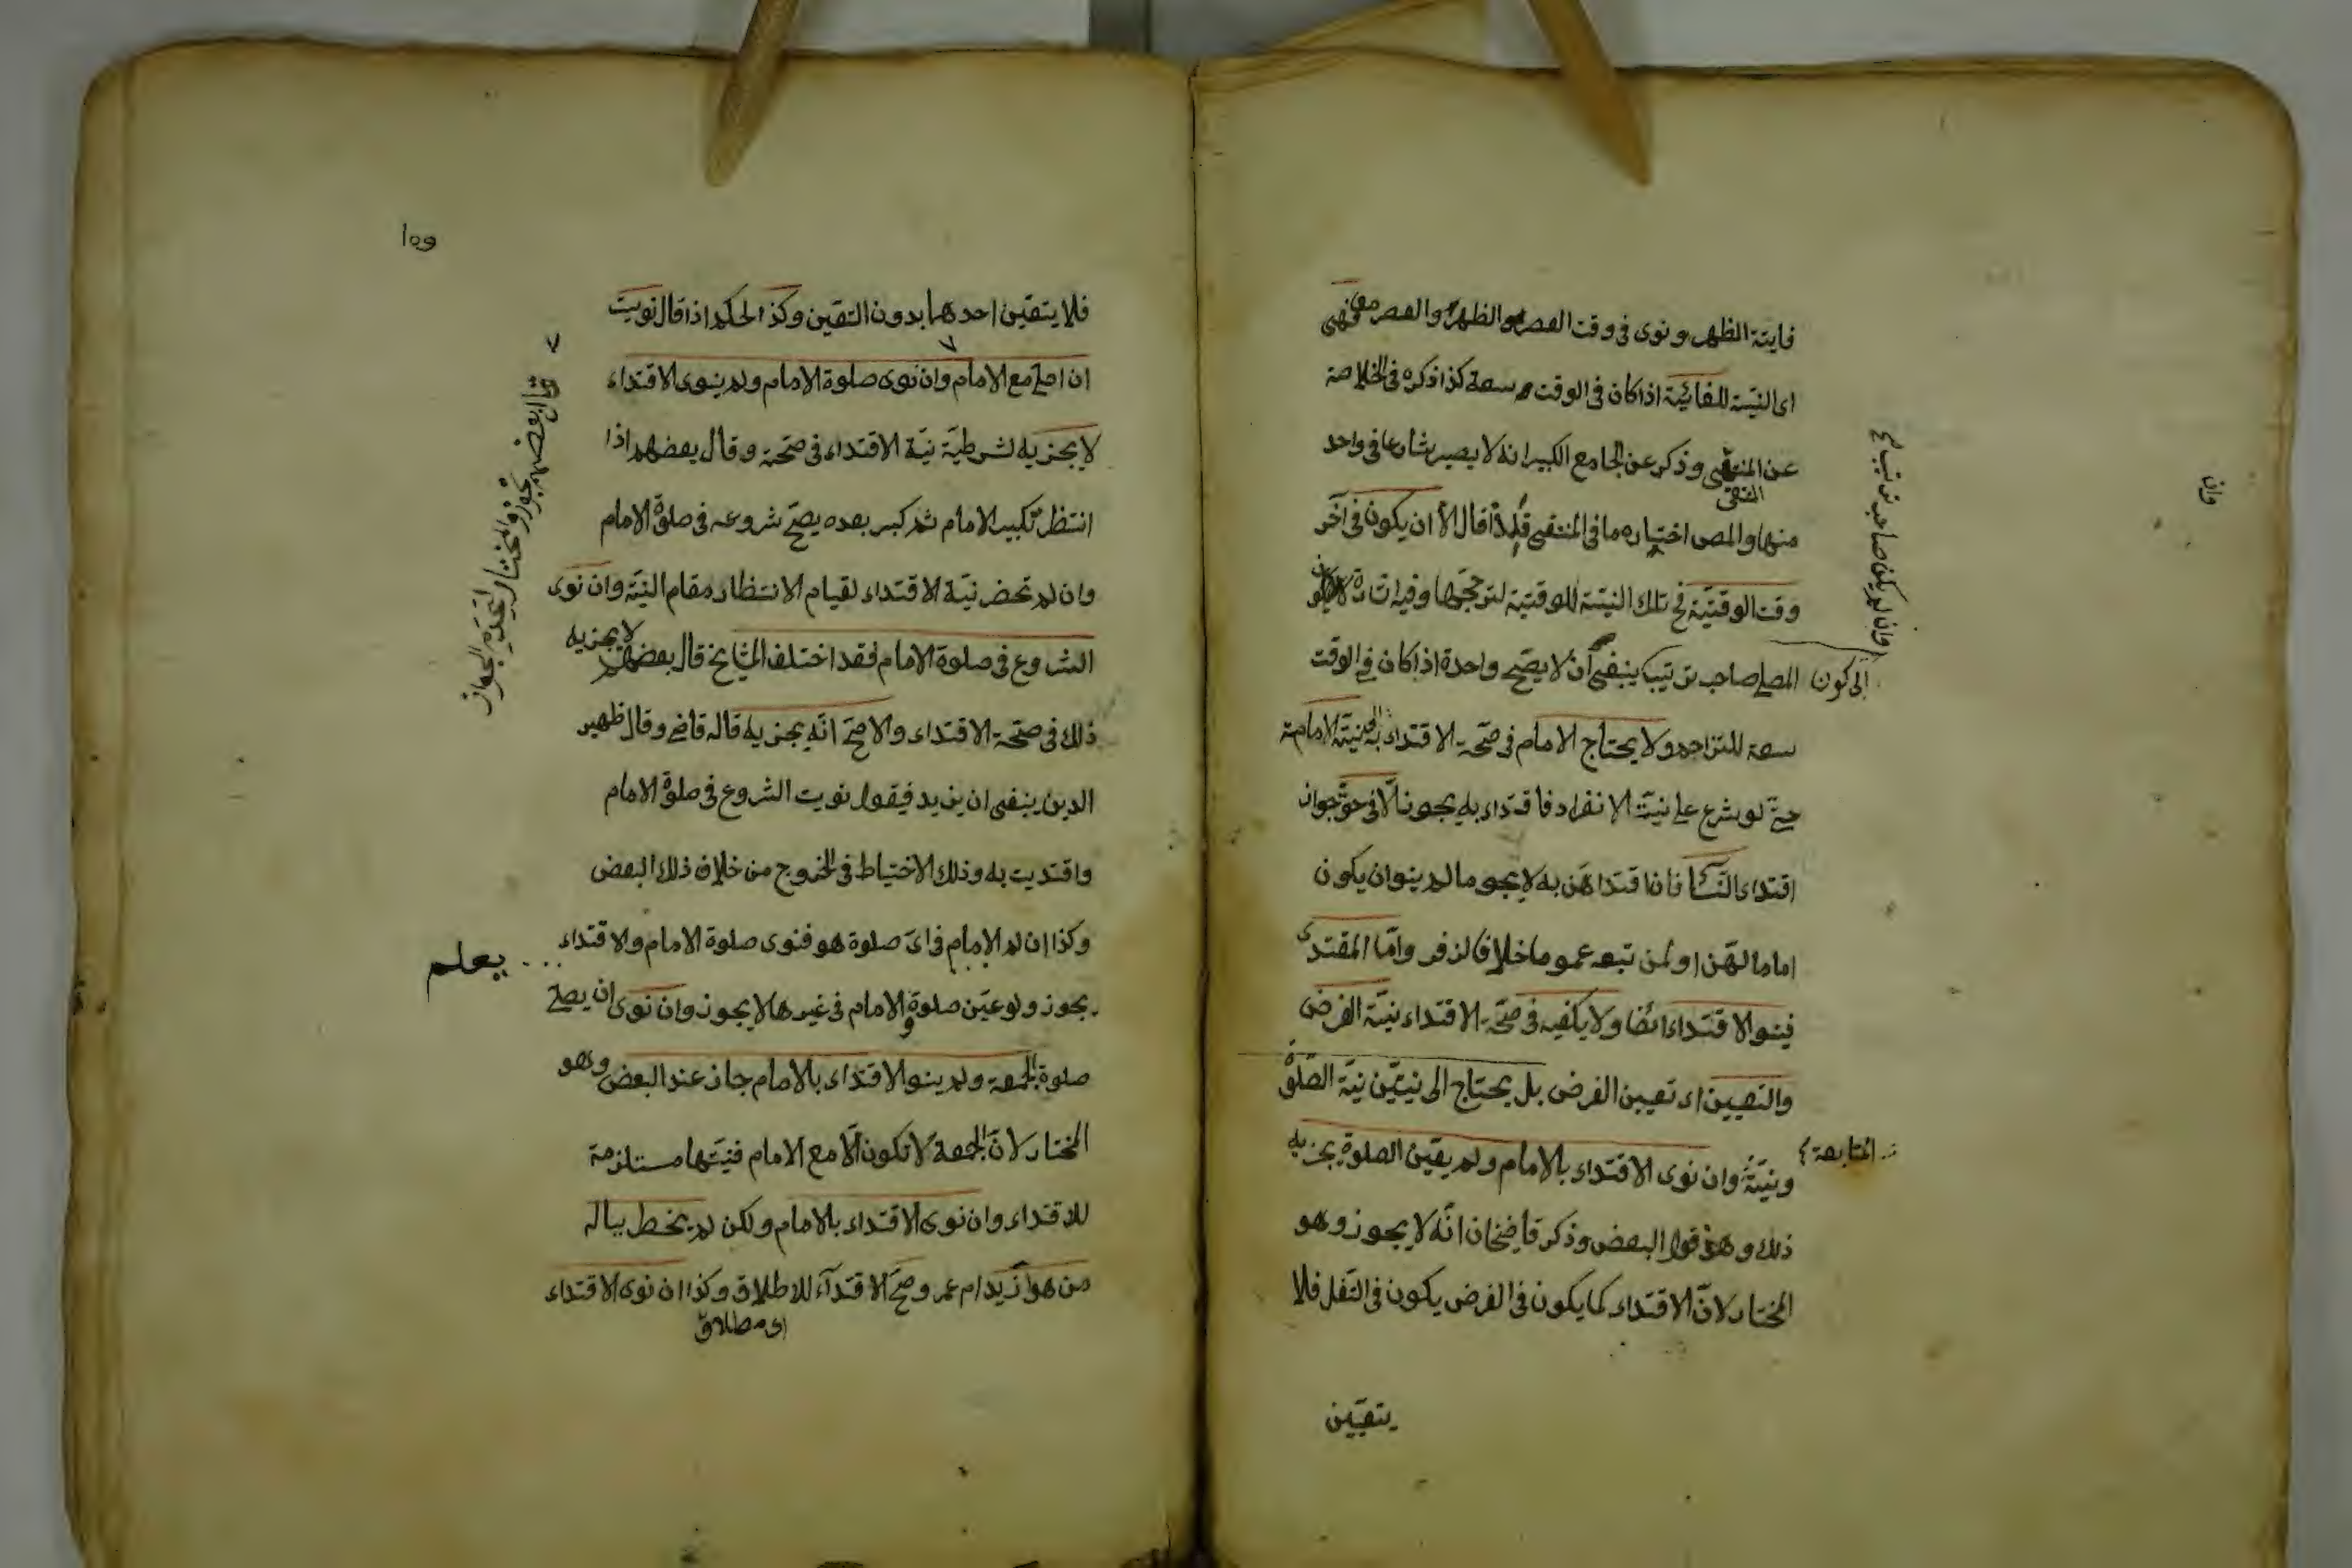 فايتة الظهر ونوى فى وقت العصر الظهر والعصر معا فهى
اى النية للفائتة اذا كان فى الوقت سعة كذا ذكره فى الخلاصة
عن المنتقى وذكر عن الجامع الكبير انه لا يصير شارعا فى واحد
منهما والمص اختار ما فى المنتقى فلذا قال الا ان يكون فى آخر
وقت الوقتية فح تلك النية للوقتية لترجحها وفيه اشارة
الى كون المصلى صاحب ترتيب ينبغى ان لا يصح واحدة اذا كان فى الوقت
وان لم يكن صاحب ترتيب
سعة للتزاحم ولا يحتاج الامام فى صحة الاقتداء به الى نية الامامة
حتى لو شرع على نية الانفراد فاقتداء به يجوز الا فى حق جواز
اقتداء النسا فان اقتداهن به لا يجو ما لم ينو ان يكون
اماما لهن او لمن تبعه عموما خلافا لزفر واما المقتدى
فينو الاقتداء ايضا ولا يكفيه فى صحة الاقتداء نية الفرض
والتعيين اى تعيين الفرض بل يحتاج الى نيتين نية الصلوة
ونية المتابعة وان نوى الاقتداء بالامام ولم يعين الصلوة يجزيه
ذلك وهو قول البعض وذكر قاضيخان انه لا يجوز وهو
المختار لان الاقتداء كما يكون فى الفرض يكون فى النفل فلا
يتعين
وان
فلا يتعين احدهما بدون التعين وكذا الحكم اذا قال نويت
ان اصلى مع الامام وان نوى صلوة الامام ولم ينوى الاقتداء
لا يجزيه لشرطية نية الاقتداء فى صحته وقال بعضهم اذا
انتظر تكبير الامام ثم كبر بعده يصح شروعه فى صلوة الامام
وان لم تحضر نية الاقتداء لقيام الانتظار مقام النية وان نوى
الشروع فى صلوة الامام فقد اختلف المشايخ قال بعضهم لا يجزيه
ذلك فى صحة الاقتداء والاصح انه يجزيه قاله قاضى وقال ظهير
الدين ينبغى ان يزيد فيقول نويت الشروع فى صلوة الامام
واقتديت به وذلك الاختياط فى الخروج من خلاف ذلك البعض
وكذا ان لم يعلم الامام فى اى صلوة هو فنوى صلوة الامام والاقتداء
يجوز ولو عين صلوة الامام فى غيرها لا يجوز وان نوى ان يصلى
صلوة الجمعة ولم ينو الاقتداء بالامام جاز عند البعض وهو
المختار لان الجمعة لا تكون الا مع الامام فنيتها مستلزمة
للاقتداء وان نوى الاقتداء بالامام ولكن لم يخطر بباله
من هو أزيد ام عمر وصح الاقتداء للاطلاق وكذا ان نوى الاقتداء
اى مطلاق
وقال بعضهم يجوز والمختار عدم الجواز
١٥٩